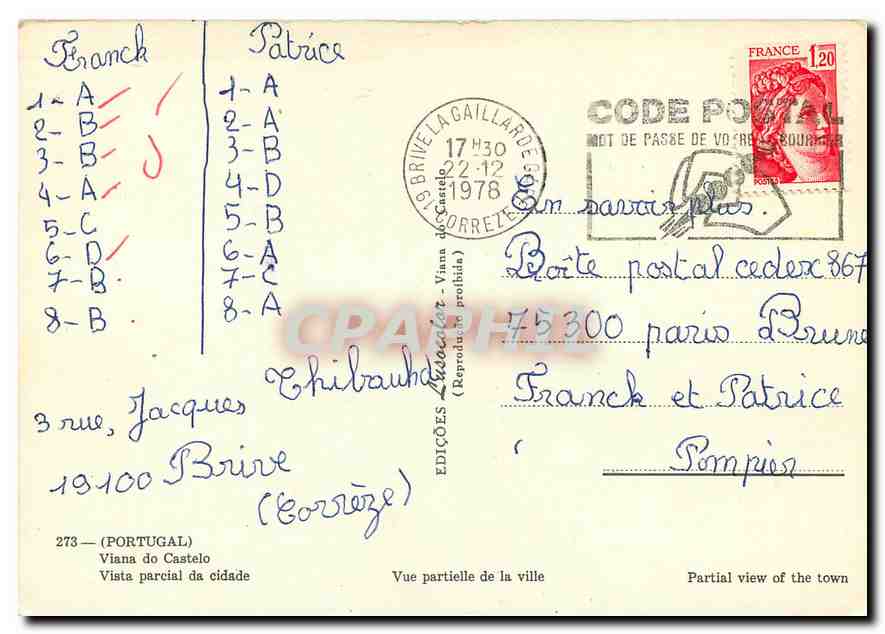 Franck
1- A
2- B
3- B
4- A
5- C
6- D
7- B
8- B
Patrice
1- A
2- A
3- B
4- D
5- B
6- A
7- C
8- A
3 rue, Jacques Thibauhd
19100 Brive
(Corrèze)
273 — (PORTUGAL)
Viana do Castelo
Vista parcial da cidade
Vue partielle de la ville
Partial view of the town
EDIÇÕES Lusocolor - Viana do Castelo
(Reprodução proibida)
19 BRIVE LA GAILLARDE
17 H30
22-12
1978
CORREZE
CODE POSTAL
MOT DE PASSE DE VOTRE COURRIER
FRANCE 1,20
POSTES
En savoir plus.
Boîte postal cedex 867
75300 paris Brune
Franck et Patrice
Pompier
CPAPHIL